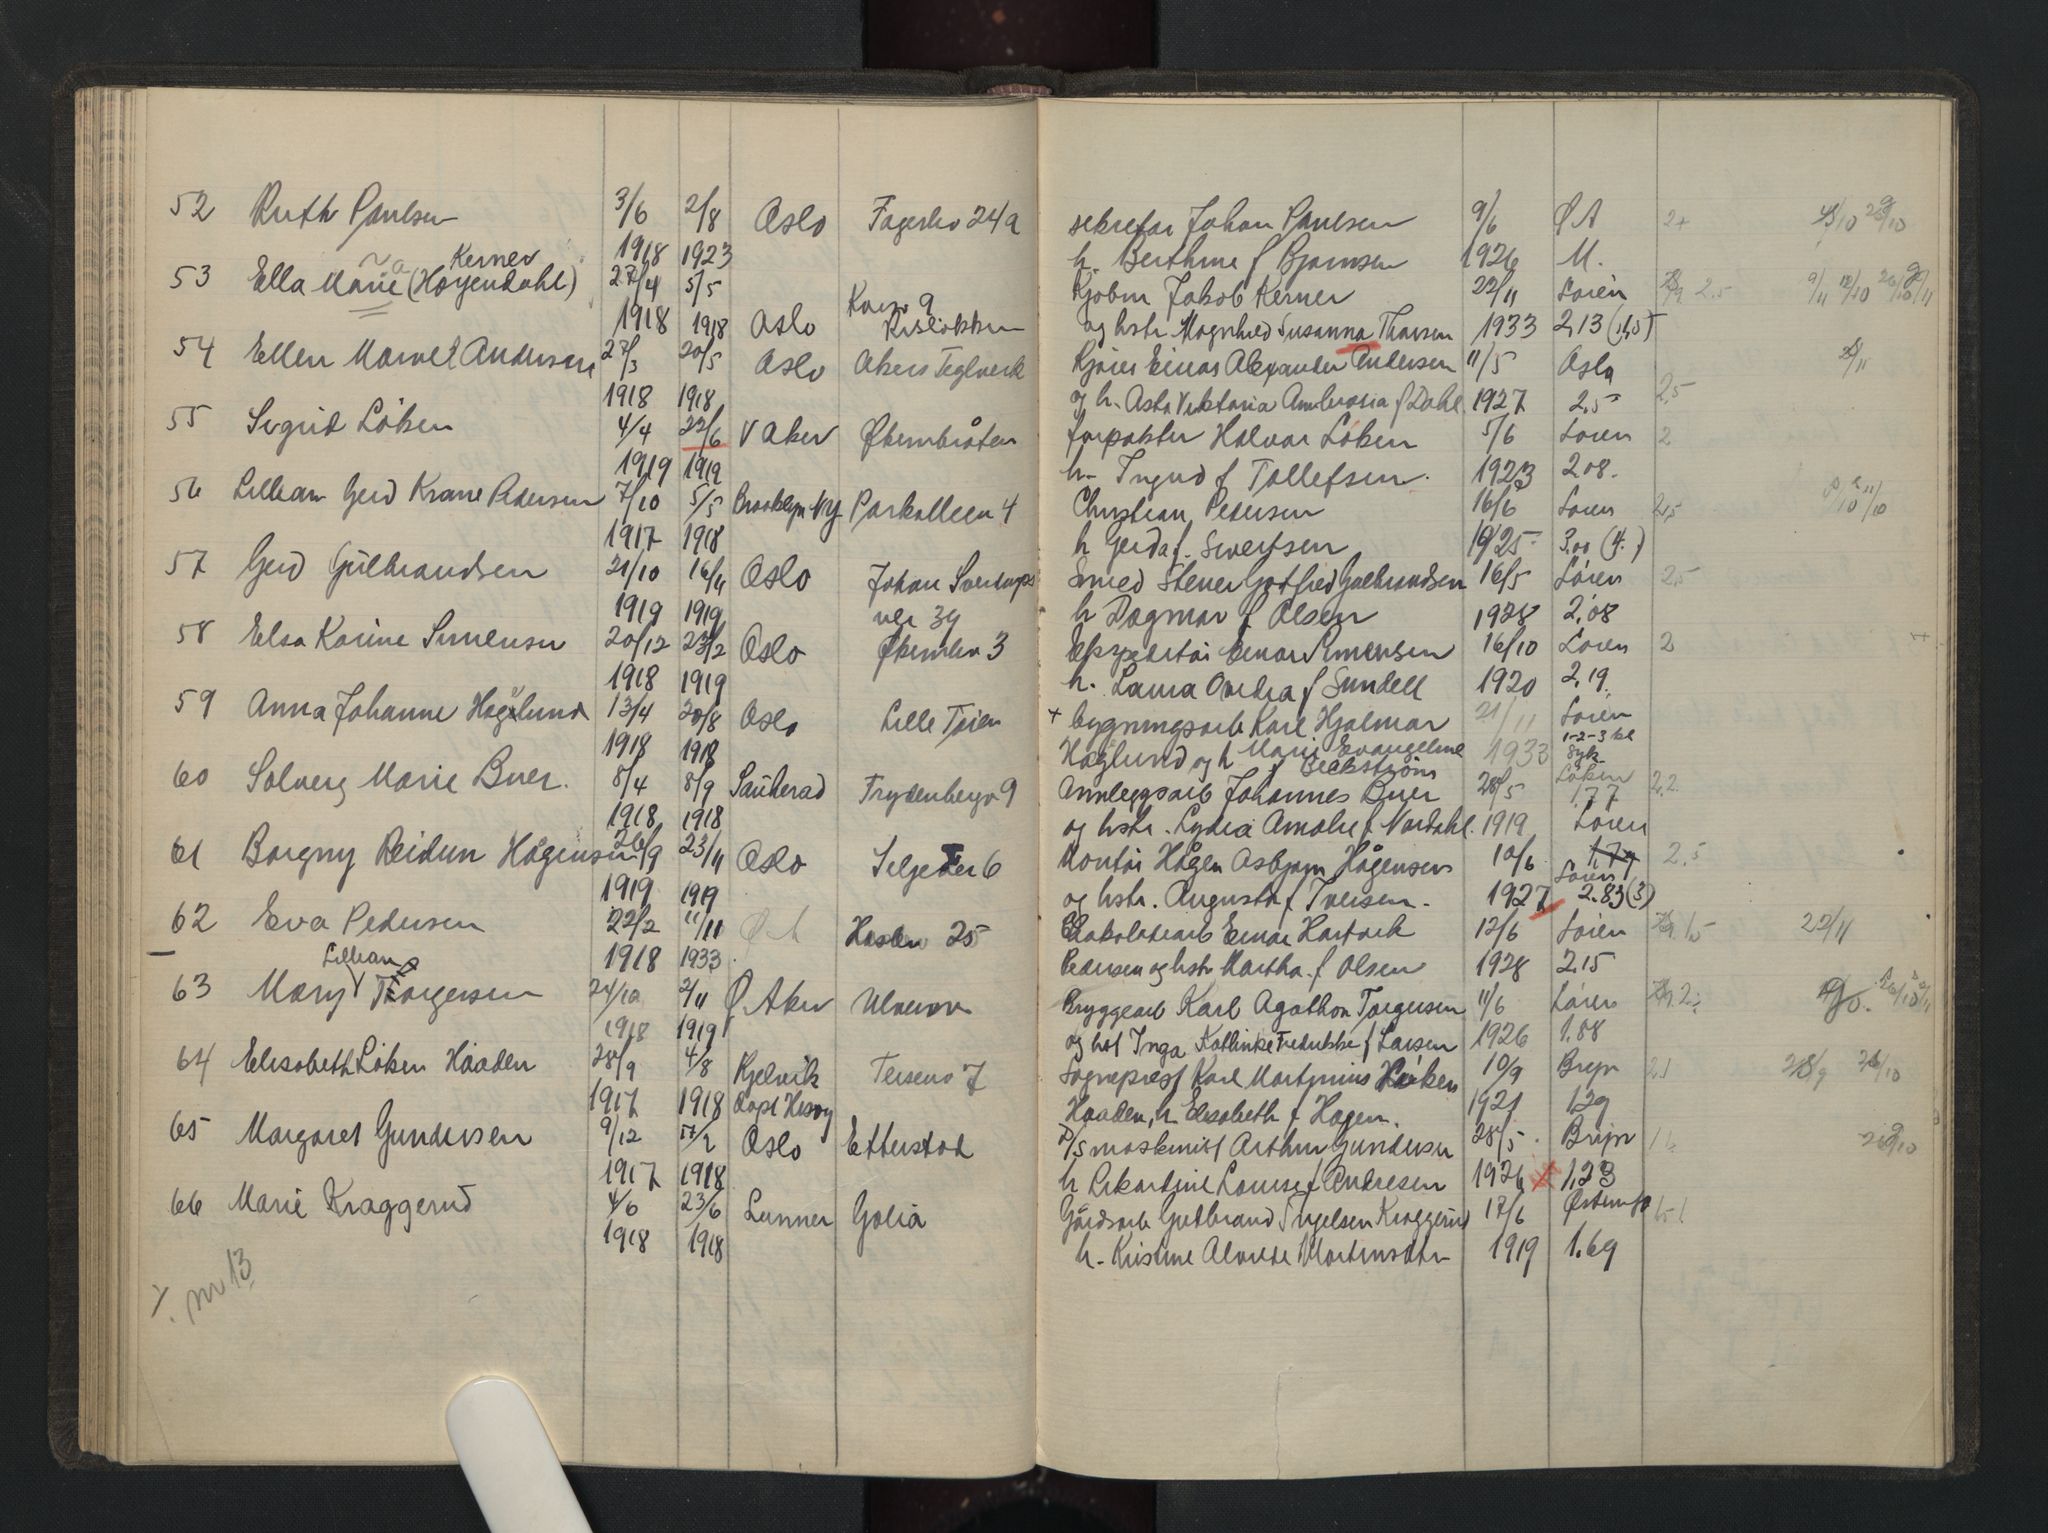 52 Ruth Paulsen 3/6 2/8 Oslo Fagerliv 24a sekretær Johan Paulsen 9/6 Ø A
1918 1923 h. Berthine f Bjørnsen 1926 M.
Kerner
53 Ella Marie (Høyendahl) 27/4 5/5 Kjøbm Jakob Kerner 22/11 Løren 2.5
1918 1918 Oslo Risløkken og hstr Magnhild Susanna Thorsen 1933 2,13 (1,5)
54 Ellen Marvel Andersen 27/3 20/5 Oslo Akers Teglverk Kjører Einar Alexander Andersen 11/5 Oslo
1918 1918 og h. Asta Viktoria Ambrosia f Dahl 1927 2.5 2,5
55 Sigrid Löken 4/4 22/6 V Aker Økernbråten forpakter Halvor Löken 5/6 Løren 2
1919 1919 h. Ingrid f Tollefsen. 1923 2 08.
56 Lillian Gerd Krane Pedersen 7/10 5/5 Brooklyn NY Parkalleen 4 Christian Pedersen 16/6 Løren 2,5
1917 1918 h Gerda f. Sivertsen 1925 3,00 (4.)
57 Gerd Gulbrandsen 21/10 16/11 Oslo Johan Sverdrups Smed Stener Gotfred Gulbrandsen 16/5 Løren 2,5
1919 1919 vei 39 h Dagmar f Olsen 1928 2,08
58 Elsa Karine Simensen 20/12 23/2 Oslo Økernv 3 Ekspeditør Einar Simensen 16/10 Løren 2
1918 1919 h. Laura Ovidia f Sundell 1920 2,19.
59 Anna Johanne Höglund 13/4 20/8 Oslo Lille Tøien + bygningsarb Karl Hjalmar 21/11 Løren
1-2-3 kl
1918 1918 Höglund og h Marie Evangeline 1933 Syk.
f Beckström
60 Solveig Marie Buer. 8/4 8/9 Sauherad Frydenbergv 9 Anleggsarb Johannes Buer 28/5 Løken 1,77 2,2.
1918 1918 og hstr. Lydia Amalie f Nordahl. 1919 Løren
61 Borgny Reidun Hågensen 26/9 23/11 Oslo Seljevn 6 Montør Hågen Asbjørn Hågensen 10/6 1,79 2,5
Løren
1919 1919 og hstr. Augusta f Iversen. 1927 2.83 (3)
62 Eva Pedersen 22/2 11/11 Ø A Haslev 25 Sjokoladearb Einar Hartvik 12/6 Løren 1,5 22/11
1918 1933 Pedersen og hstr Martha f Olsen 1928 2.15
Lillian
63 Mary Torgersen 24/10 2/11 Ø. Aker Ulvenv Bryggearb Karl Agathon Torgersen 11/6 Løren
1918 1919 og hst Inga Kathinka Fredrikke f Larsen 1926 1.88
64 Elisabeth Löken Haaden 28/9 4/8 Kjelvik Teisenv 7 Sogneprest Karl Martinius Löken 10/9 Bryn 2,1 28/9 26/10
1917 1918 Haaden, h Elisabeth f Hagen. 1921 1,29
65 Margaret Gundersen 9/12 17/2 Oslo Etterstad D/S maskinist Arthur Gundersen 28/5 Bryn
1917 1918 h Rikardine Louise f Andresen 1926 1,23
66 Marie Kraggerud 4/6 23/6 Lunner Golia Gårdsarb Gudbrand Ingelsen Kraggerud 17/6
1918 1918 h. Kristine Alvilde Martinsdtr 1919 1.69
nr 13